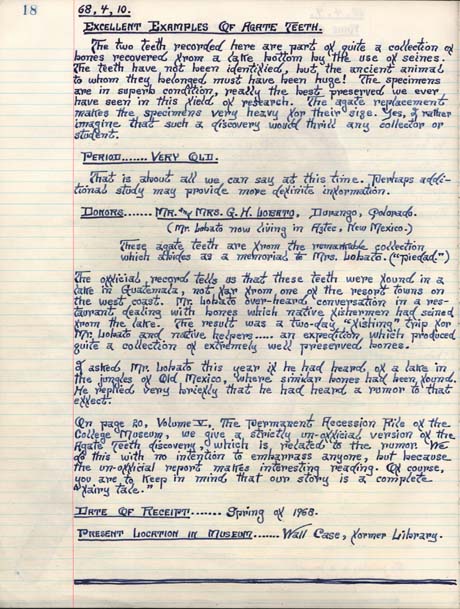 18
68, 4, 10.
EXCELLENT EXAMPLES OF AGATE TEETH.
The two teeth recorded here are part of quite a collection of
bones recovered from a lake bottom by the use of seines.
The teeth have not been identified, but the ancient animal
to whom they belonged must have been huge! The specimens
are in superb condition, really the best preserved we ever
have seen in this field of research. The agate replacement
makes the specimens very heavy for their size. Yes, I rather
imagine that such a discovery would thrill any collector or
student.
PERIOD....... VERY OLD.
That is about all we can say at this time. Perhaps addi-
tional study may provide more definite information.
DONORS....... MR. and MRS. G. H. LOBATO, Durango, Colorado.
(Mr. Lobato now living in Aztec, New Mexico.)
These agate teeth are from the remarkable collection
which abides as a memorial to Mrs. Lobato. ("Piedad.")
The official record tells us that these teeth were found in a
lake in Guatemala, not far from one of the resort towns on
the west coast. Mr. Lobato over-heard conversation in a res-
taurant dealing with bones which native fishermen had seined
from the lake. The result was a two-day "fishing" trip for
Mr. Lobato and native helpers..... an expedition which produced
quite a collection of extremely well preserved bones.
I asked, Mr. Lobato this year if he had heard, of a lake in
the jungles of Old Mexico, where similar bones had been found.
He replied very briefly that he had heard a rumor to that
effect.
On page 20, Volume V, The Permanent Accession File of the
College Museum, we give a strictly un-official version of the
Agate Teeth discovery which is related to the rumor. We
do this with no intention to embarrass anyone, but because
the un-official report makes interesting reading. Of course,
you are to keep in mind that our story is a complete
"fairy tale."
DATE OF RECEIPT....... Spring of 1968.
PRESENT LOCATION IN MUSEUM...... Wall Case, former Library.